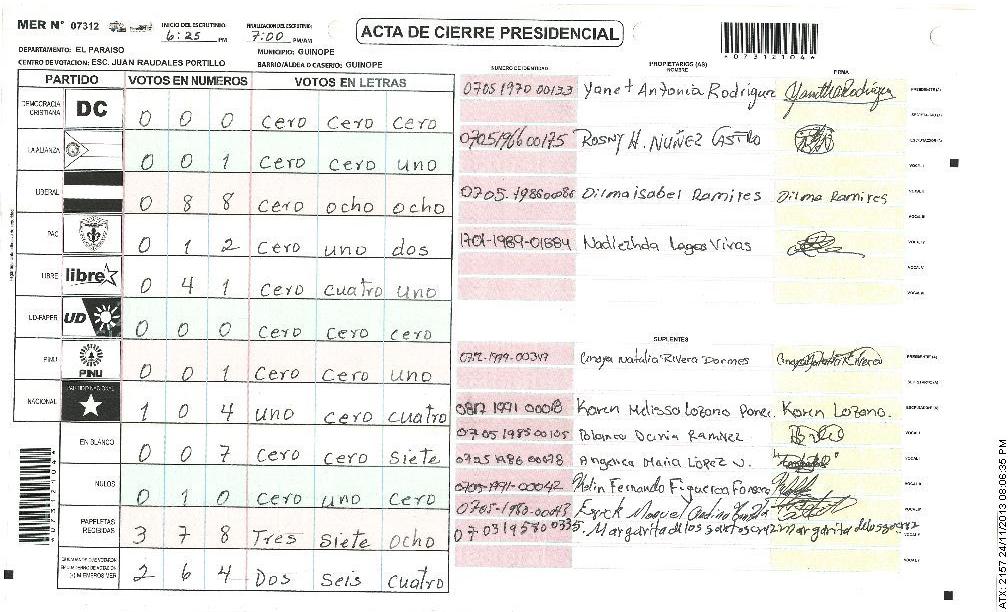 MER N° 07312
INICIO DEL ESCRUTINIO 6:25 PM
FINALIZACION DEL ESCRUTINIO 7:00 PM/AM
ACTA DE CIERRE PRESIDENCIAL
*07312104*
DEPARTAMENTO: EL PARAISO
MUNICIPIO: GUINOPE
CENTRO DE VOTACION: ESC. JUAN RAUDALES PORTILLO
BARRIO/ALDEA O CASERIO: GUINOPE
PARTIDO VOTOS EN NUMEROS VOTOS EN LETRAS
NUMERO DE IDENTIDAD PROPIETARIOS (AS) NOMBRE FIRMA
DEMOCRACIA CRISTIANA DC 0 0 0 cero cero cero
LA ALIANZA 0 0 1 cero cero uno
LIBERAL 0 8 8 cero ocho ocho
PAC 0 1 2 cero uno dos
LIBRE libre 0 4 1 cero cuatro uno
UD-FAPER UD 0 0 0 cero cero cero
PINU PINU 0 0 1 cero cero uno
NACIONAL PARTIDO NACIONAL 1 0 4 uno cero cuatro
EN BLANCO 0 0 7 cero cero siete
NULOS 0 1 0 cero uno cero
PAPELETAS RECIBIDAS 3 7 8 Tres siete ocho
2 6 4 Dos seis cuatro
0705 1970 00133 Yanet Antonia Rodriguez PRESIDENTE (A)
SECRETARIO (A)
0705 1966 00175 Rosny H. Nuñez Castro ESCRUTADOR (A)
VOCAL I
0705-1986 00086 Dilma isabel Ramires Dilma Ramires VOCAL II
VOCAL III
1701-1989-01884 Nadiezhda Lagos Vivas VOCAL IV
VOCAL V
VOCAL VI
SUPLENTES
Natalia Rivera PRESIDENTE (A)
SECRETARIO (A)
1991 Karen Melissa Lozano Karen Lozano. ESCRUTADOR (A)
0705 1985 00105 Ramirez VOCAL I
Angelica Maria López
0705-1991-00042 Fernando Figueroa Fonseca
0705-1980-00043
Margarita de los santos cruz
*07312104*
ATX: 2157 24/11/2013 08:06:35 PM